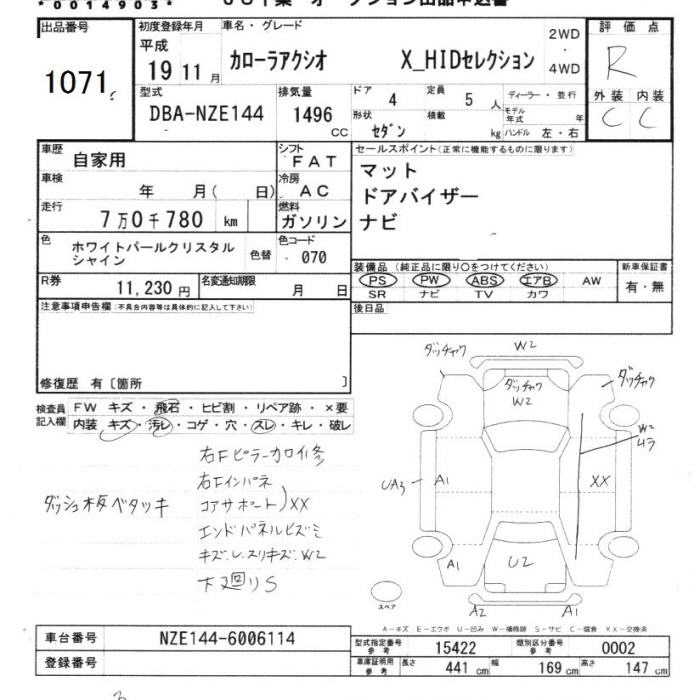 *0014903*
出品番号 初度登録年月 車名・グレード 2WD・4WD 評価点
1071 平成 19 11月 カローラアクシオ X_HIDセレクション R
型式 排気量 ドア 4 定員 5 人 ディーラー・並行 外装 内装
DBA-NZE144 1496 CC 形状 セダン 積載 kg モデル年式 年 ハンドル 左・右 C C
車歴 自家用 シフト FAT セールスポイント(正常に機能するものに限ります)
車検 年 月( 日) 冷房 AC マット
走行 7万0千780 km 燃料 ガソリン ドアバイザー
ナビ
色 ホワイトパールクリスタルシャイン 色替 色コード 070
装備品(純正品に限り○をつけてください) 新車保証書
R券 11,230円 名変通知期限 月 日 PS PW ABS エアB AW 有・無
SR ナビ TV カワ
注意事項申告欄(不具合内容等は具体的に記入して下さい) 後日品
修復歴 有〔箇所 〕
検査員記入欄 FW キズ・飛石・ヒビ割・リペア跡・×要
内装 キズ・汚レ・コゲ・穴・スレ・キレ・破レ
ダッチャク W2
ダッチャク W2
ダッチャク
W2
UA3 A1 XX
A1 U2
A2 A1
スペア
右Fピラー
右Fインパネ
コアサポート)XX
エンドパネルヒズミ
キズ.スリキズ.W2
下廻りS
ダッシュ板ベタツキ
A-キズ E-エクボ U-凹み W-補修跡 S-サビ C-腐食 XX-交換済
車台番号 NZE144-6006114 型式指定番号 参考 15422 類別区分番号 参考 0002
登録番号 車庫証明用 参考 長さ 441 cm 幅 169 cm 高さ 147 cm